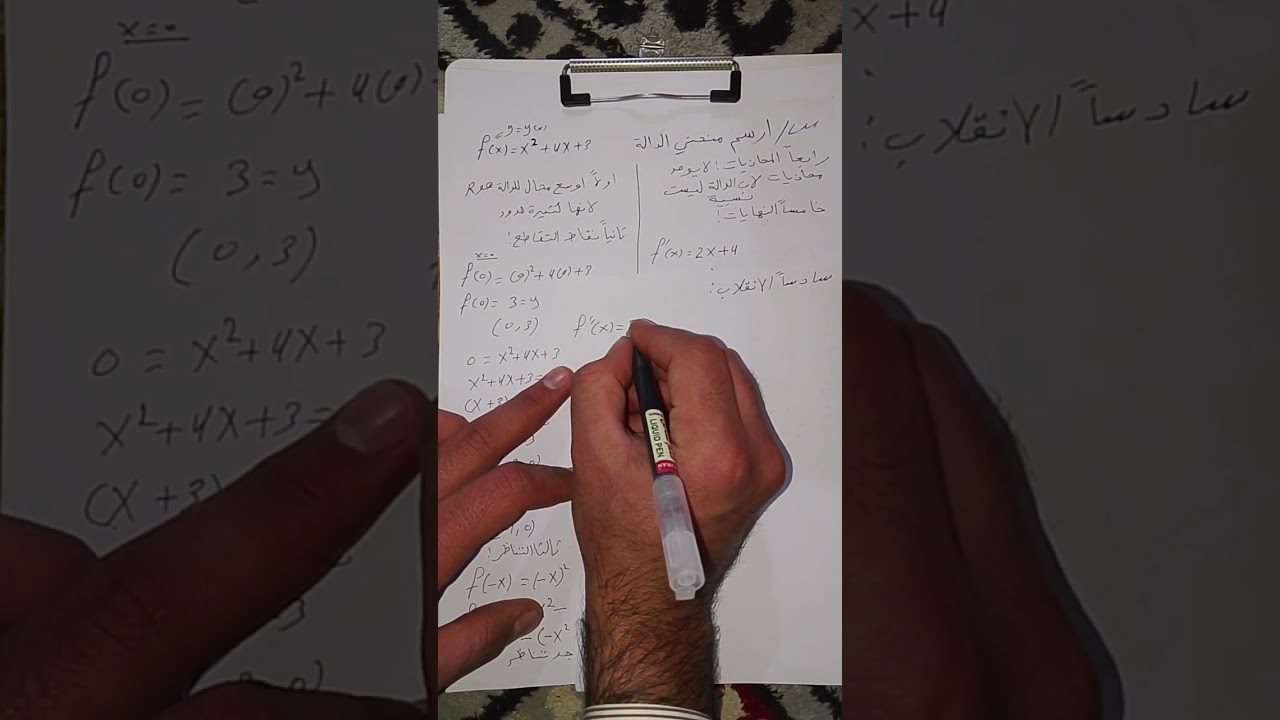 س/ ارسم منحني الدالة
y=y(x)
f(x)=x²+4x+3
اولاً اوسع مجال للدالة هو R
لانها كثيرة حدود
ثانياً نقاط التقاطع!
x=0
f(0) = (0)²+4(0)+3
f(0) = 3 = y
(0,3)
0 = x²+4x+3
x²+4x+3=
(x+3)
,0)
ثالثاً التناظر!
f(-x) = (-x)²
(-x²
جد تناظر
رابعاً المحاذيات! لا يوجد
محاذيات لان الدالة ليست
نسبية
خامساً النهايات!
f'(x) = 2x+4
سادساً الانقلاب:
f''(x) =
LIQUID PEN